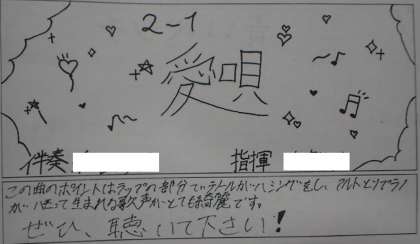 2-1
愛唄
伴奏
指揮
この曲のポイントはラップの部分でテノールがハミングをし、アルトとソプラノ
が合わさって生まれる歌声がとても綺麗です。
ぜひ、聴いて下さい!